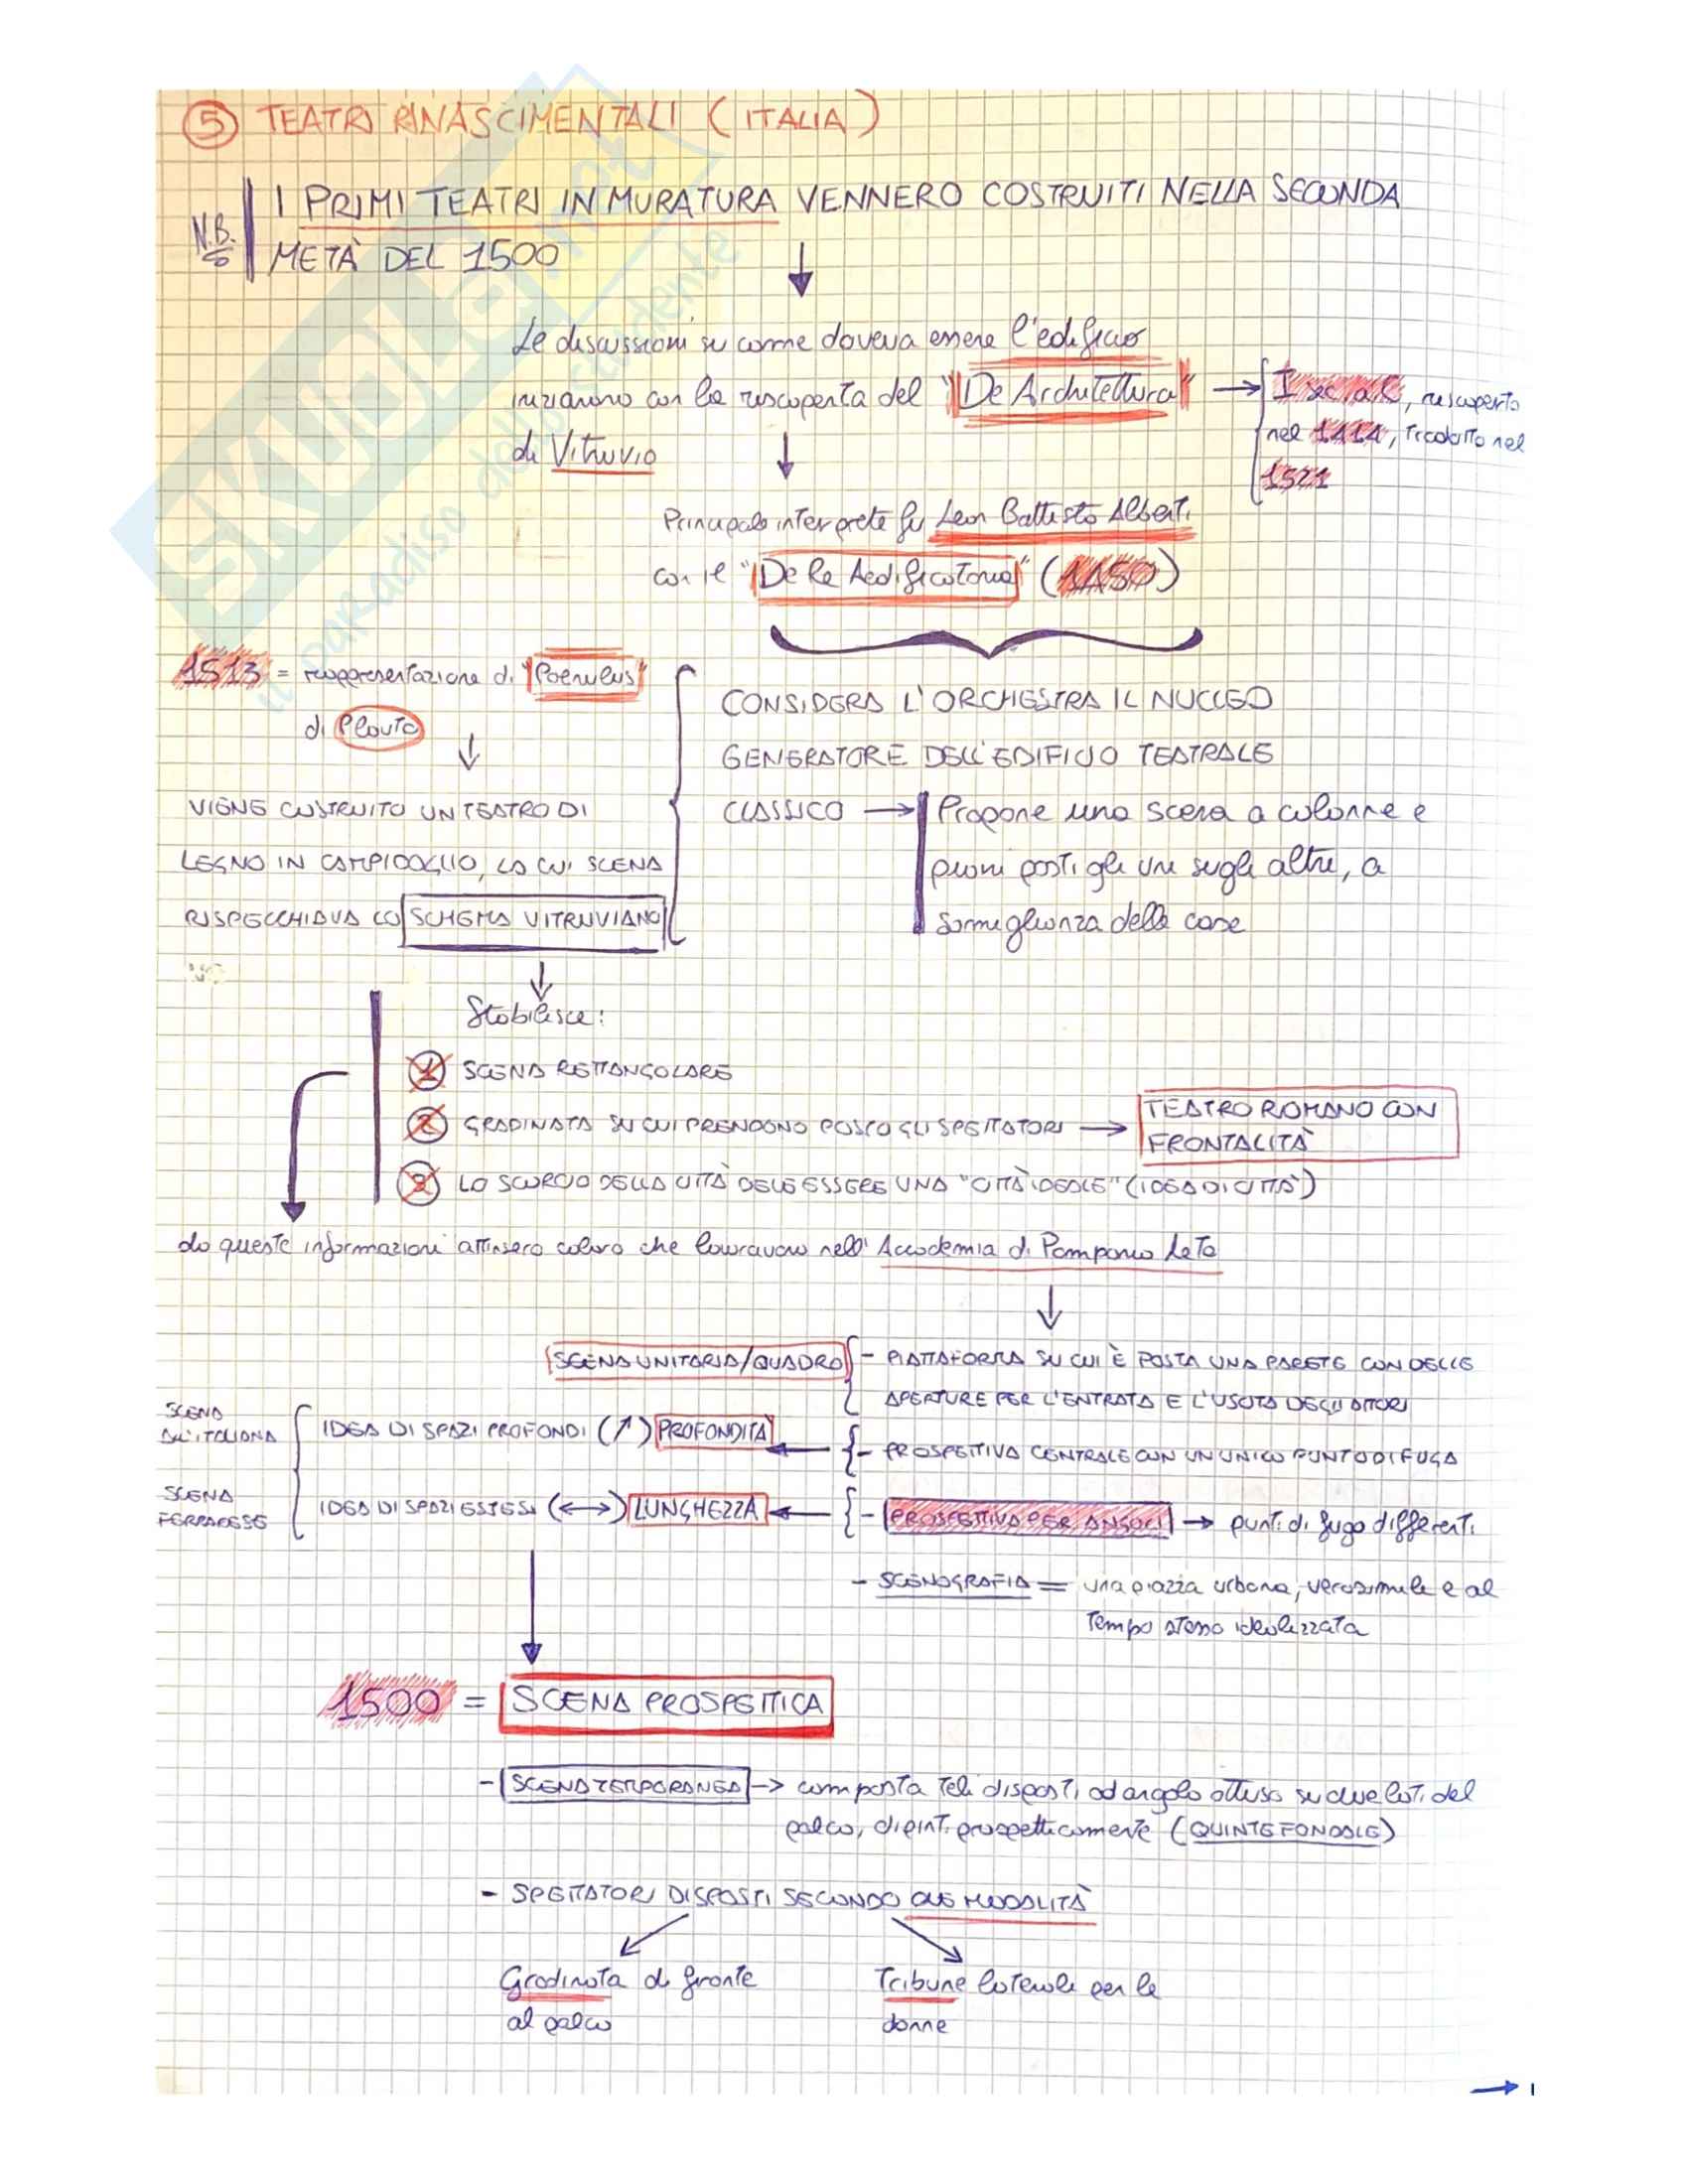 5 TEATRI RINASCIMENTALI (ITALIA)
N.B.
I PRIMI TEATRI IN MURATURA VENNERO COSTRUITI NELLA SECONDA
METÀ DEL 1500
Le discussioni su come doveva essere l'edificio
iniziarono con la riscoperta del "De Architettura"
di Vitruvio
I sec a.C, riscoperto
nel 1414, tradotto nel
1521
Principale interprete fu Leon Battista Alberti
con il "De Re Aedificatoria" (1450)
1513 = rappresentazione di "Poenulus"
di Plauto
VIENE COSTRUITO UN TEATRO DI
LEGNO IN CAMPIDOGLIO, LA CUI SCENA
RISPECCHIAVA LO SCHEMA VITRUVIANO
CONSIDERA L'ORCHESTRA IL NUCLEO
GENERATORE DELL'EDIFICIO TEATRALE
CLASSICO → Propone una scena a colonne e
piani posti gli uni sugli altri, a
somiglianza delle case
Stabilisce:
1 SCENA RETTANGOLARE
2 GRADINATA SU CUI PRENDONO POSTO GLI SPETTATORI → TEATRO ROMANO CON
FRONTALITÀ
3 LO SCORCIO DELLA CITTÀ DEVE ESSERE UNA "CITTÀ IDEALE" (IDEA DI CITTÀ)
da queste informazioni attinsero coloro che lavoravano nell'Accademia di Pomponio Leto
SCENA UNITARIA/QUADRO
- PIATTAFORMA SU CUI È POSTA UNA PARETE CON DELLE
APERTURE PER L'ENTRATA E L'USCITA DEGLI ATTORI
SCENA
ALL'ITALIANA
IDEA DI SPAZI PROFONDI (↗) PROFONDITÀ
- PROSPETTIVA CENTRALE CON UN UNICO PUNTO DI FUGA
SCENA
FERRARESE
IDEA DI SPAZI ESTESI (↔) LUNGHEZZA
- PROSPETTIVA PER ANGOLI → punti di fuga differenti
- SCENOGRAFIA = una piazza urbana, verosimile e al
tempo stesso idealizzata
1500 = SCENA PROSPETTICA
- SCENA TEMPORANEA → composta teli disposti ad angolo ottuso su due lati del
palco, dipinti prospetticamente (QUINTE FONDALE)
- SPETTATORI DISPOSTI SECONDO DUE MODALITÀ
Gradinata di fronte
al palco
Tribune laterali per le
donne
SKUOLA.net
il paradiso dello studente